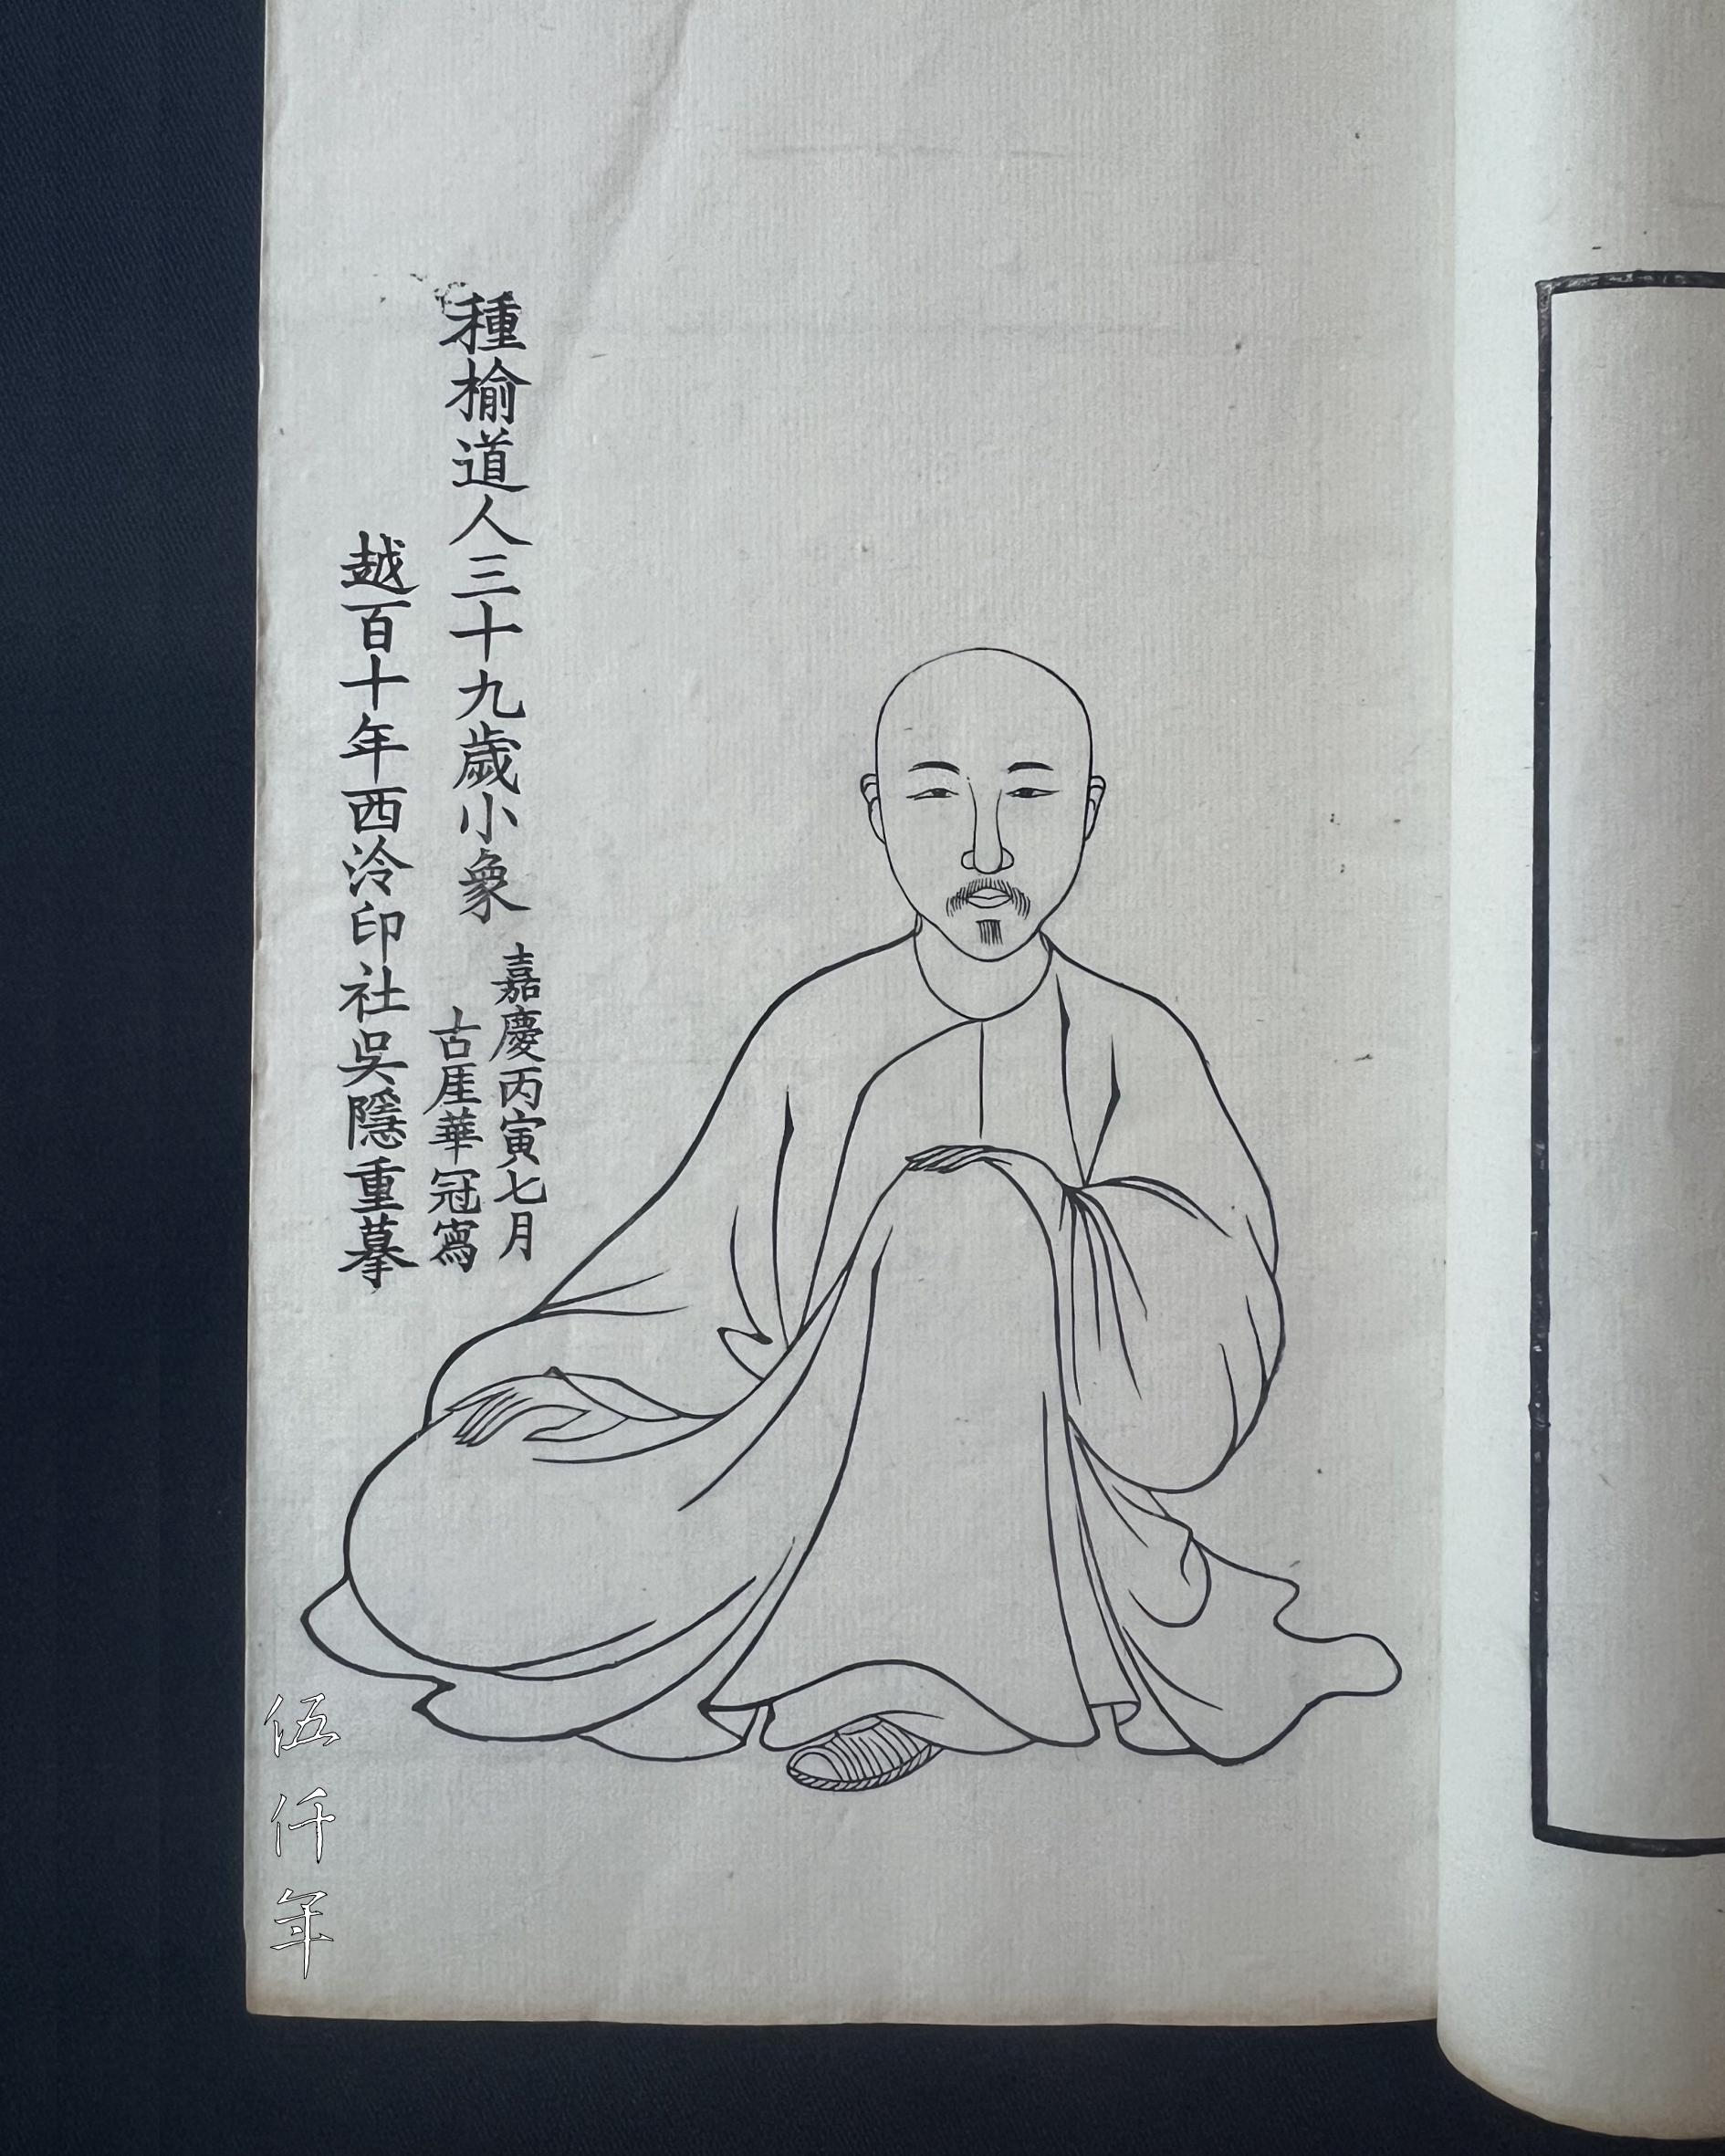 種榆道人三十九歲小象
嘉慶丙寅七月
古厓華冠寫
越百十年西泠印社吳隱重摹
伍仟年